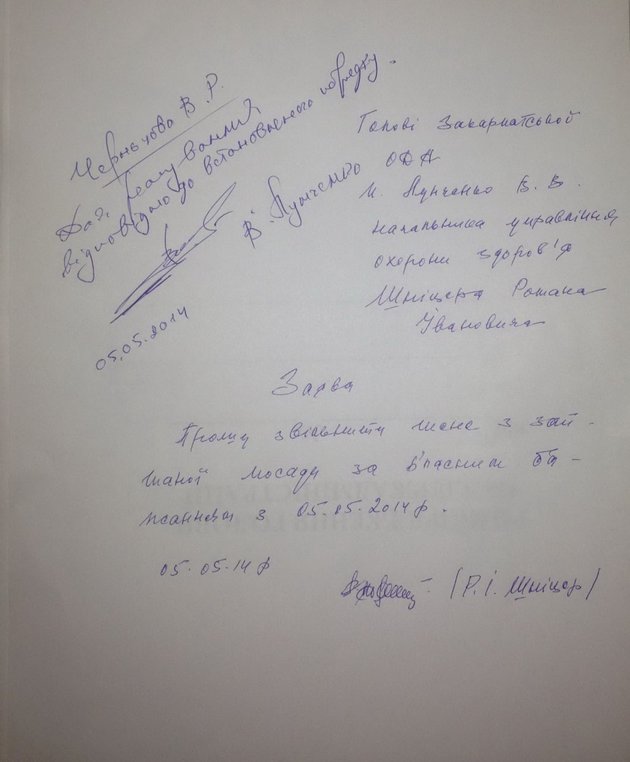 Чернычова В. Р.
Для реагування
відповідно до встановленого порядку.
В. Лунченко
05.05.2014
Голові Закарпатської
ОДА
п. Лунченко В. В.
начальника управління
охорони здоров'я
Шніцера Романа
Івановича
Заява
Прошу звільнити мене з зай-
маної посади за власним ба-
жанням з 05.05.2014р.
05.05.14р
(Р.І. Шніцер)